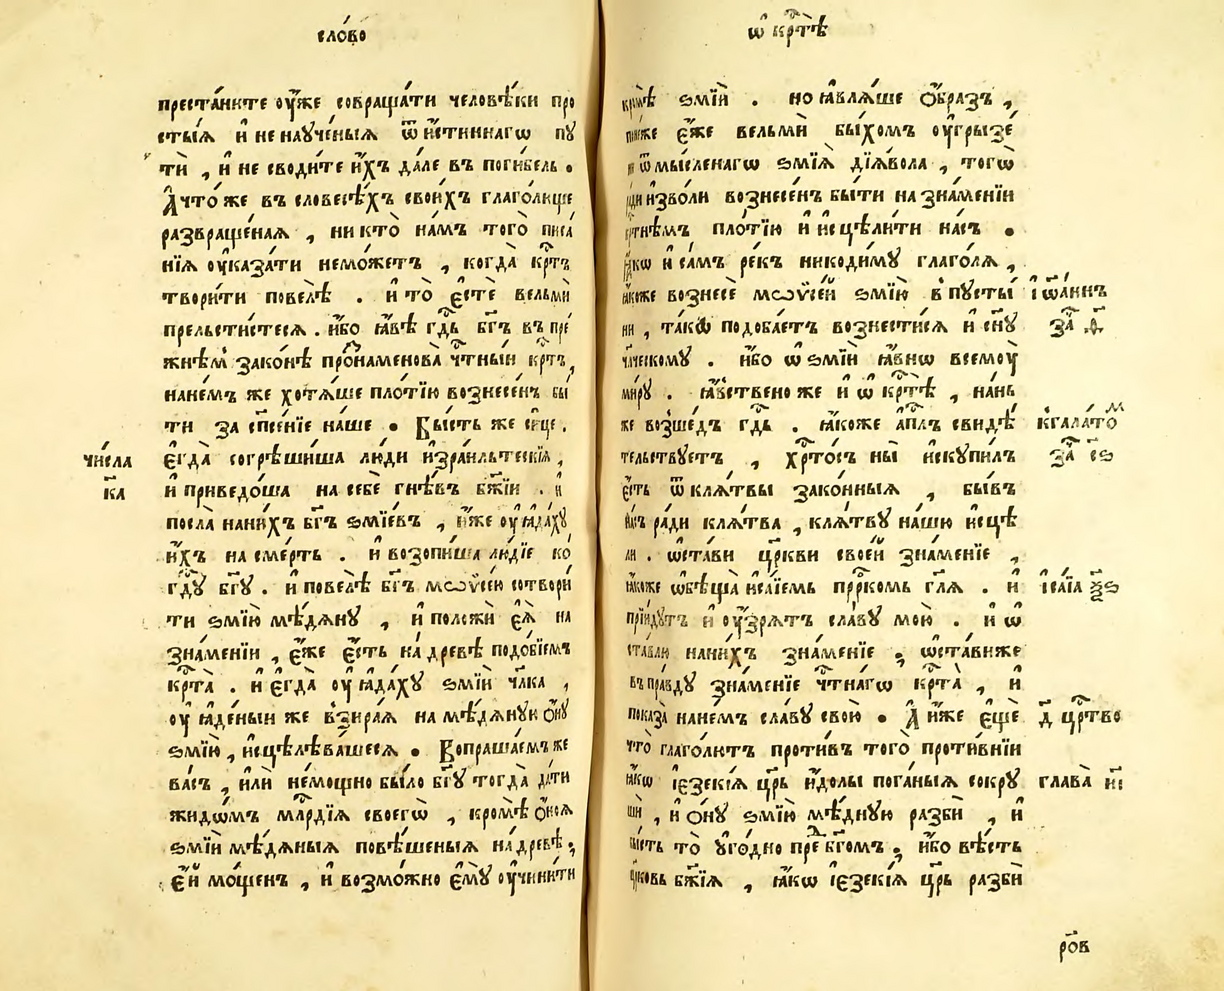 сло́во
преста́ните ᲂу҆́же совраща́ти человѣ́ки про
сты́ѧ и҆ не наꙋче́ныѧ ѿ и҆́стиннагѡ пꙋ
тѝ , и҆ не сводѝте и҆́хъ да́ле въ поги́бель .
А҆ что́ же въ словесѣ́хъ свои́хъ глаго́лище
развраще́наѧ , никто̀ на́мъ того̀ писа́
нїѧ ᲂу҆каза́ти немо́жетъ , когда̀ кр҇тъ
твори́ти повелѣ̀ . и҆ то̀ є҆́сте вельмѝ
прельсти́стесѧ . и҆́бо ꙗ҆́вѣ гд҇ь бг҃ъ въ пре́
жнѣм зако́нѣ пронаменова̀ ч҇тныи кр҇тъ ,
нане́мъ же хотѧ́ше пло́тїю вознесе́нъ бы́
ти за сп҃се́нїе на́ше . Бы́сть же си́це .
є҆гда̀ согрѣши́ша лю́ди и҆зра́ильтескїѧ ,
и҆ приведо́ша на себѐ гнѣ́въ бж҃їи . и҆
посла̀ нани́хъ бг҃ъ ѕмїе́въ , и҆́же ᲂу҆ꙗда́хꙋ
и҆́хъ на сме́рть . и҆ возопи́ша лю́дїе ко́
гд҇ꙋ бг҃ꙋ . и҆ повелѣ̀ бг҃ъ мѡѷсе́ю сотвори́
ти ѕмїю̀ мѣ́дѧнꙋ , и҆ положѝ є҆ѧ̀ на
зна́менїи , є҆́же є҆́сть на́ древѣ̀ подо́бїемъ
кр҇та̀ . и҆ є҆гда̀ ᲂу҆ꙗда́хꙋ ѕмїи̑ чл҃ка ,
ᲂу҆ꙗде́ныи же взира́ѧ на мѣ́дѧнꙋю ѻ҆́нꙋ
ѕмїю̀ , и҆сцѣлѣва́шесѧ . Вопраша́емъ же
ва́съ , и҆лѝ немо́щно бы́ло бг҃ꙋ тогда̀ да́ти
жидѡ́мъ мл҇рдїѧ своегѡ̀ , кромѣ̀ ѻ҆́ноѧ
ѕмїѝ мѣ́дѧныѧ повѣ́шеныѧ на́древѣ ;
є҆́й мо́щенъ , и҆ возмо́жно є҆мꙋ̀ ᲂу҆чини́ти
числа
к҃а
ѡ҆ кр҇тѣ̀
кромѣ̀ ѕмїѝ . но ꙗ҆влѧ́ше ѻ҆́бразъ ,
поне́же є҆́же вельмѝ бы́хомъ ᲂу҆грызе́
ни ѿ мы́сленагѡ ѕмї́ѧ дїѧ́вола , тогѡ̀
ра́ди и҆зво́ли вознесе́нъ бы́ти на зна́менїи
кр҇тнѣмъ пло́тїю и҆ и҆сцѣли́ти на́съ .
ꙗ҆́кѡ и҆ са́мъ ре́къ никоди́мꙋ глаго́лѧ ,
ꙗ҆́коже вознесѐ мѡѷсе́й ѕмїю̀ в пꙋсты́
ни , та́кѡ подоба́етъ вознести́сѧ и҆ сн҃ꙋ
чл҃ческомꙋ . и҆́бо ѡ҆ ѕмїѝ ꙗ҆́внѡ всемᲂу̀
ми́рꙋ . ꙗ҆́вственоже и҆ ѡ҆ кр҇тѣ̀ , нань
же возше́дъ гд҇ь . ꙗ҆́коже а҆пл҃ъ свидѣ́
тельствꙋетъ , хр҇то́съ ны̀ и҆скꙋпи́лъ
є҆́сть ѿ клѧ́твы зако́нныѧ , бы́въ
на́съ ра́ди клѧ́тва , клѧ́твꙋ на́шю и҆сцѣ
ли . ѡ҆ста́ви цр҃кви свое́й зна́менїе ,
ꙗ҆́коже ѡ҆бѣща̀ и҆са́їемь прⷪ҇ркомь гл҃ѧ . и҆
прїи́дꙋтъ и҆ ᲂу҆́зрѧтъ сла́вꙋ мою̀ . и҆ ѡ҆
ста́влю нани́хъ зна́менїе , ѡ҆ста́виже
въ пра́вдꙋ зна́менїе ч҇тнагѡ кр҇та̀ , и҆
показа̀ нане́мъ сла́вꙋ свою̀ . А҆ и҆́же є҆щѐ
что̀ глаго́лютъ проти́въ того̀ проти́внїи
ꙗ҆́кѡ і҆езекі́ѧ цр҃ь и҆́долы пога́ныѧ сокрꙋ
шѝ , и҆ ѻ҆́нꙋ ѕмїю̀ мѣ́днꙋю разбѝ , и҆
бы́сть то̀ ᲂу҆го́дно преⷣ бг҃омъ ; и҆́бо вѣ́сть
цр҃ковь бж҃їѧ , ꙗ҆́кѡ і҆езекі́ѧ цр҃ь разбѝ
і҆ѡа́ннъ
за҄ д҃
кгала́тоⷨ
за҄ ѕ҃
і҆са́їа ѯ҃ѕ
д҃ ца҇рство
глава̀ и҃і
ро҃в